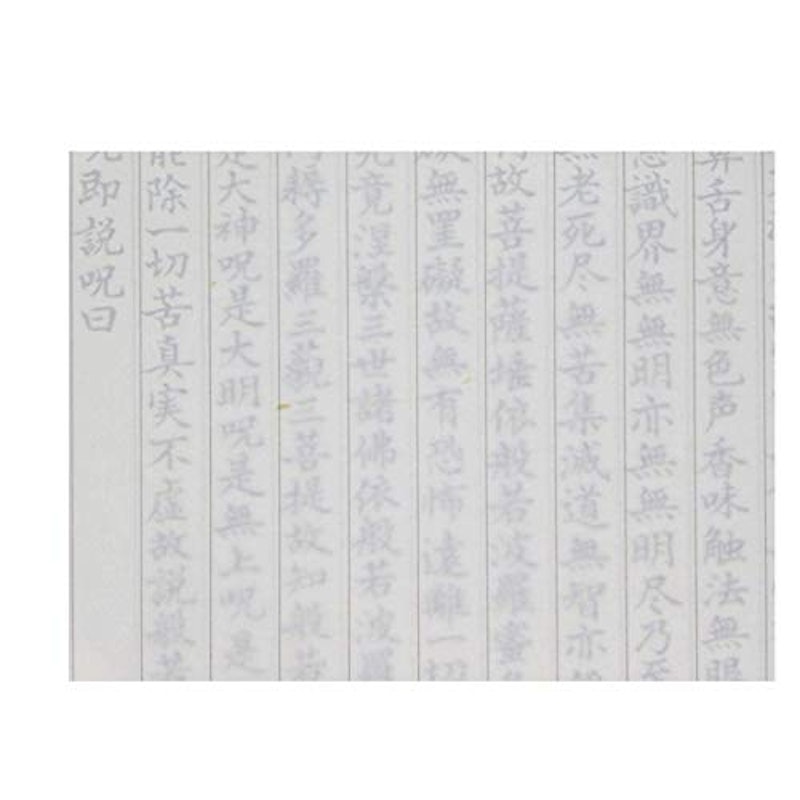 舌身意無色声香味触法無眼
識界無無明亦無無明尽乃至
老死尽無苦集滅道無智亦
故菩提薩埵依般若波羅蜜
無罣礙故無有恐怖遠離一切
竟涅槃三世諸佛依般若波羅
耨多羅三藐三菩提故知般若
是大神呪是大明呪是無上呪是
能除一切苦真実不虚故説般若
即説呪曰